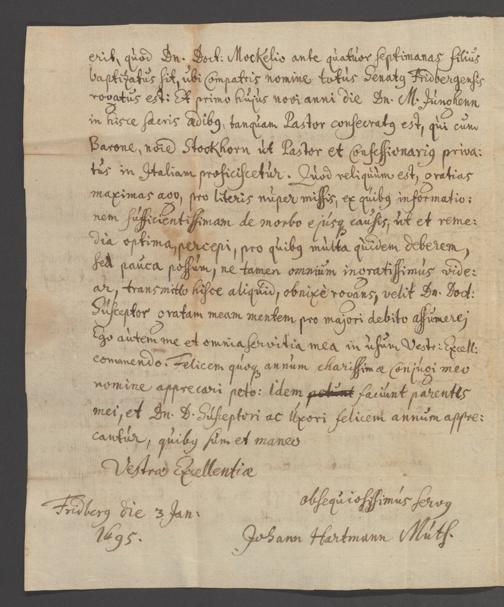 erit, quòd Dn. Doct: Mockelio ante quatuor septimanas filius
baptizatus sit, ubi Compatris nomine totus Senatq Fridbergensis
rogatus est: Et primo hujus novi anni die Dn. M. Junghenn
in hisce sacris ædibq, tanquam Pastor consecratq est, qui cum
Barone, noïe Stockhorn ut Pastor et Confessionariq priva:
tus in Italiam proficiscetur. Quod reliquum est, gratias
maximas ago, pro literis nuper missis, ex quibq informatio:
nem sufficientissimam de morbo ejusq causis, ut et reme:
dia optima, percepi, pro quibq multa quidem deberem,
sed pauca possum, ne tamen omnium ingratissimus vide:
ar, transmitto hisce aliquid, obnixè rogans, velit Dn. Doct:
Susceptor gratam meam mentem pro majori debito assumere;
Ego autem me et omnia servitia mea in usum Vestr: Excell:
commendo. Felicem quoq annum charissimæ Conjugi meo
nomine apprecari peto: Idem petunt faciunt parentes
mei, et Dn. D. Susceptori ac Uxori felicem annum appre:
cantur, quibq sum et maneo
Vestræ Excellentiæ
obsequiosissimus servq
Fridberg die 3 Jan:
1695.
Johann Hartmann Muth.